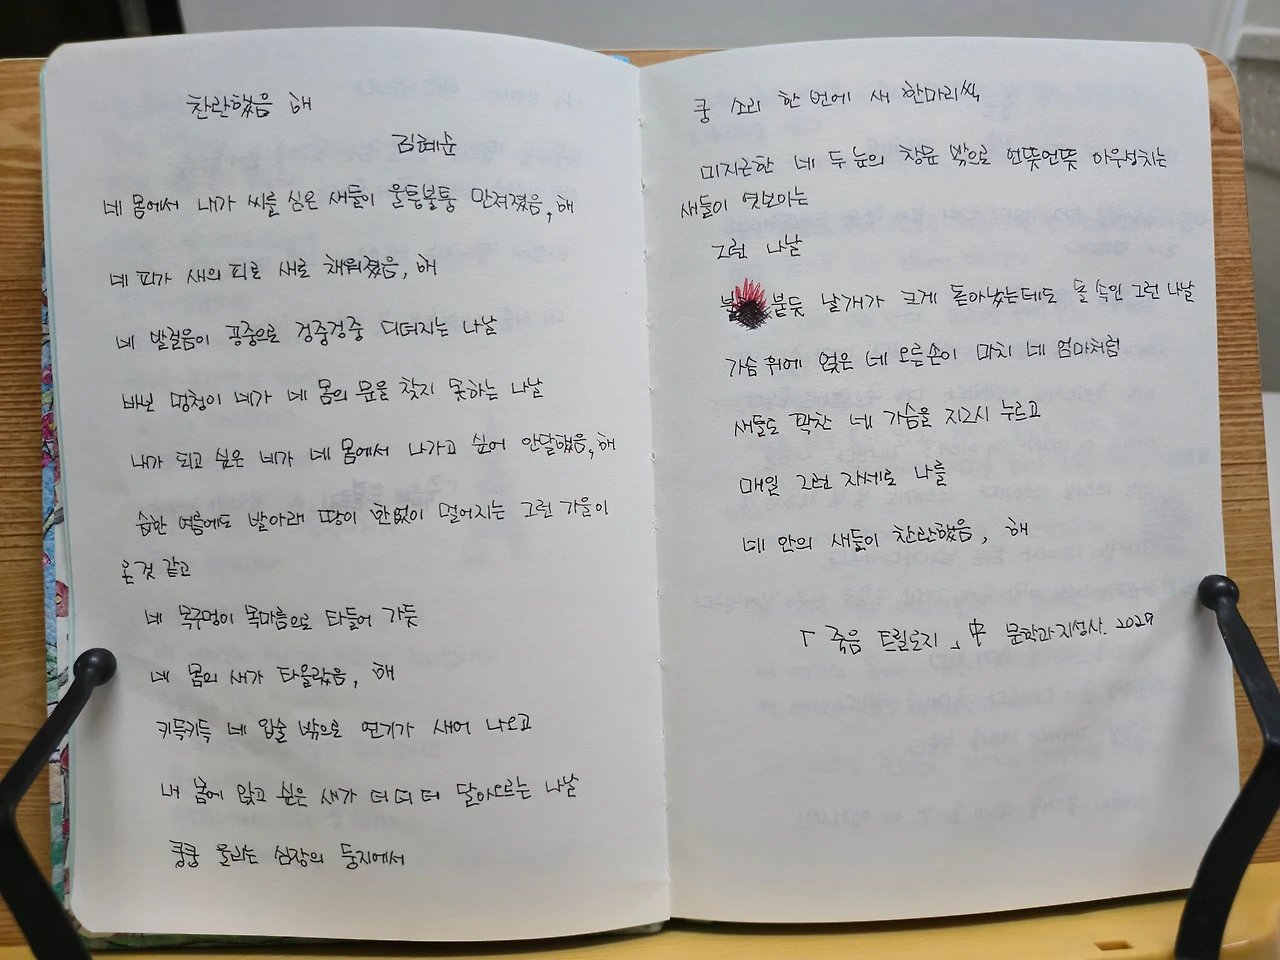 찬란했음 해
김혜순
네 몸에서 내가 씨를 심은 새들이 울퉁불퉁 만져졌음, 해
네 피가 새의 피로 새로 채워졌음, 해
네 발걸음이 공중으로 겅중겅중 디뎌지는 나날
바보 멍청이 네가 네 몸의 문을 찾지 못하는 나날
내가 되고 싶은 네가 네 몸에서 나가고 싶어 안달했음, 해
습한 여름에도 발아래 땅이 한없이 멀어지는 그런 가을이
온 것 같고
네 목구멍이 목마름으로 타들어 가듯
네 몸의 새가 타올랐음, 해
키득키득 네 입술 밖으로 연기가 새어 나오고
내 몸에 앉고 싶은 새가 더 더 더 달아오르는 나날
쿵쿵 울리는 심장의 둥지에서
쿵 소리 한 번에 새 한마리씩
미지근한 네 두 눈의 창문 밖으로 언뜻언뜻 아우성치는
새들이 엿보이는
그런 나날
불 붙듯 날개가 크게 돋아났는데도 몸 속인 그런 나날
가슴 위에 얹은 네 오른손이 마치 네 엄마처럼
새들로 꽉찬 네 가슴을 지그시 누르고
매일 그런 자세로 나를
네 안의 새들이 찬란했음, 해
「죽음 트릴로지」中 문학과지성사.